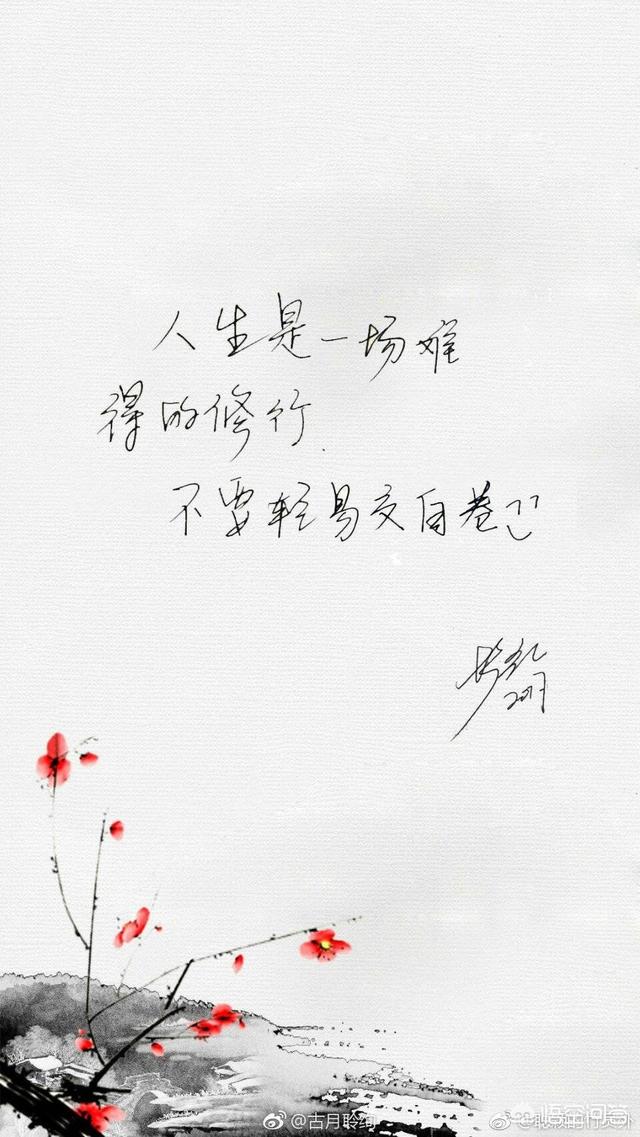 人生是一场难
得的修行.
不要轻易交白卷!!
@古月聆绚
悟空问答